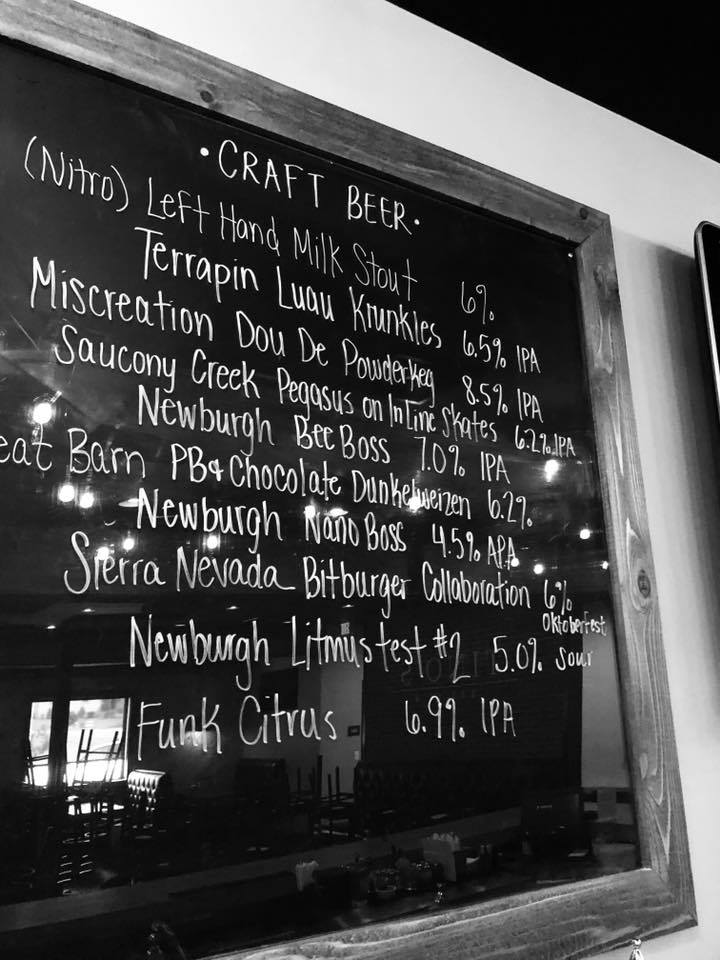 • CRAFT BEER •
(Nitro) Left Hand Milk Stout 6%
Terrapin Luau Krunkles 6.5% IPA
Miscreation Dou De Powderkeg 8.5% IPA
Saucony Creek Pegasus on InLine Skates 6.2% IPA
Newburgh Bee Boss 7.0% IPA
eat Barn PB& Chocolate Dunkelweizen 6.2%
Newburgh Nano Boss 4.5% APA
Sierra Nevada Bitburger Collaboration 6%
Oktoberfest
Newburgh Litmus test #2 5.0% Sour
Funk Citrus 6.9% IPA